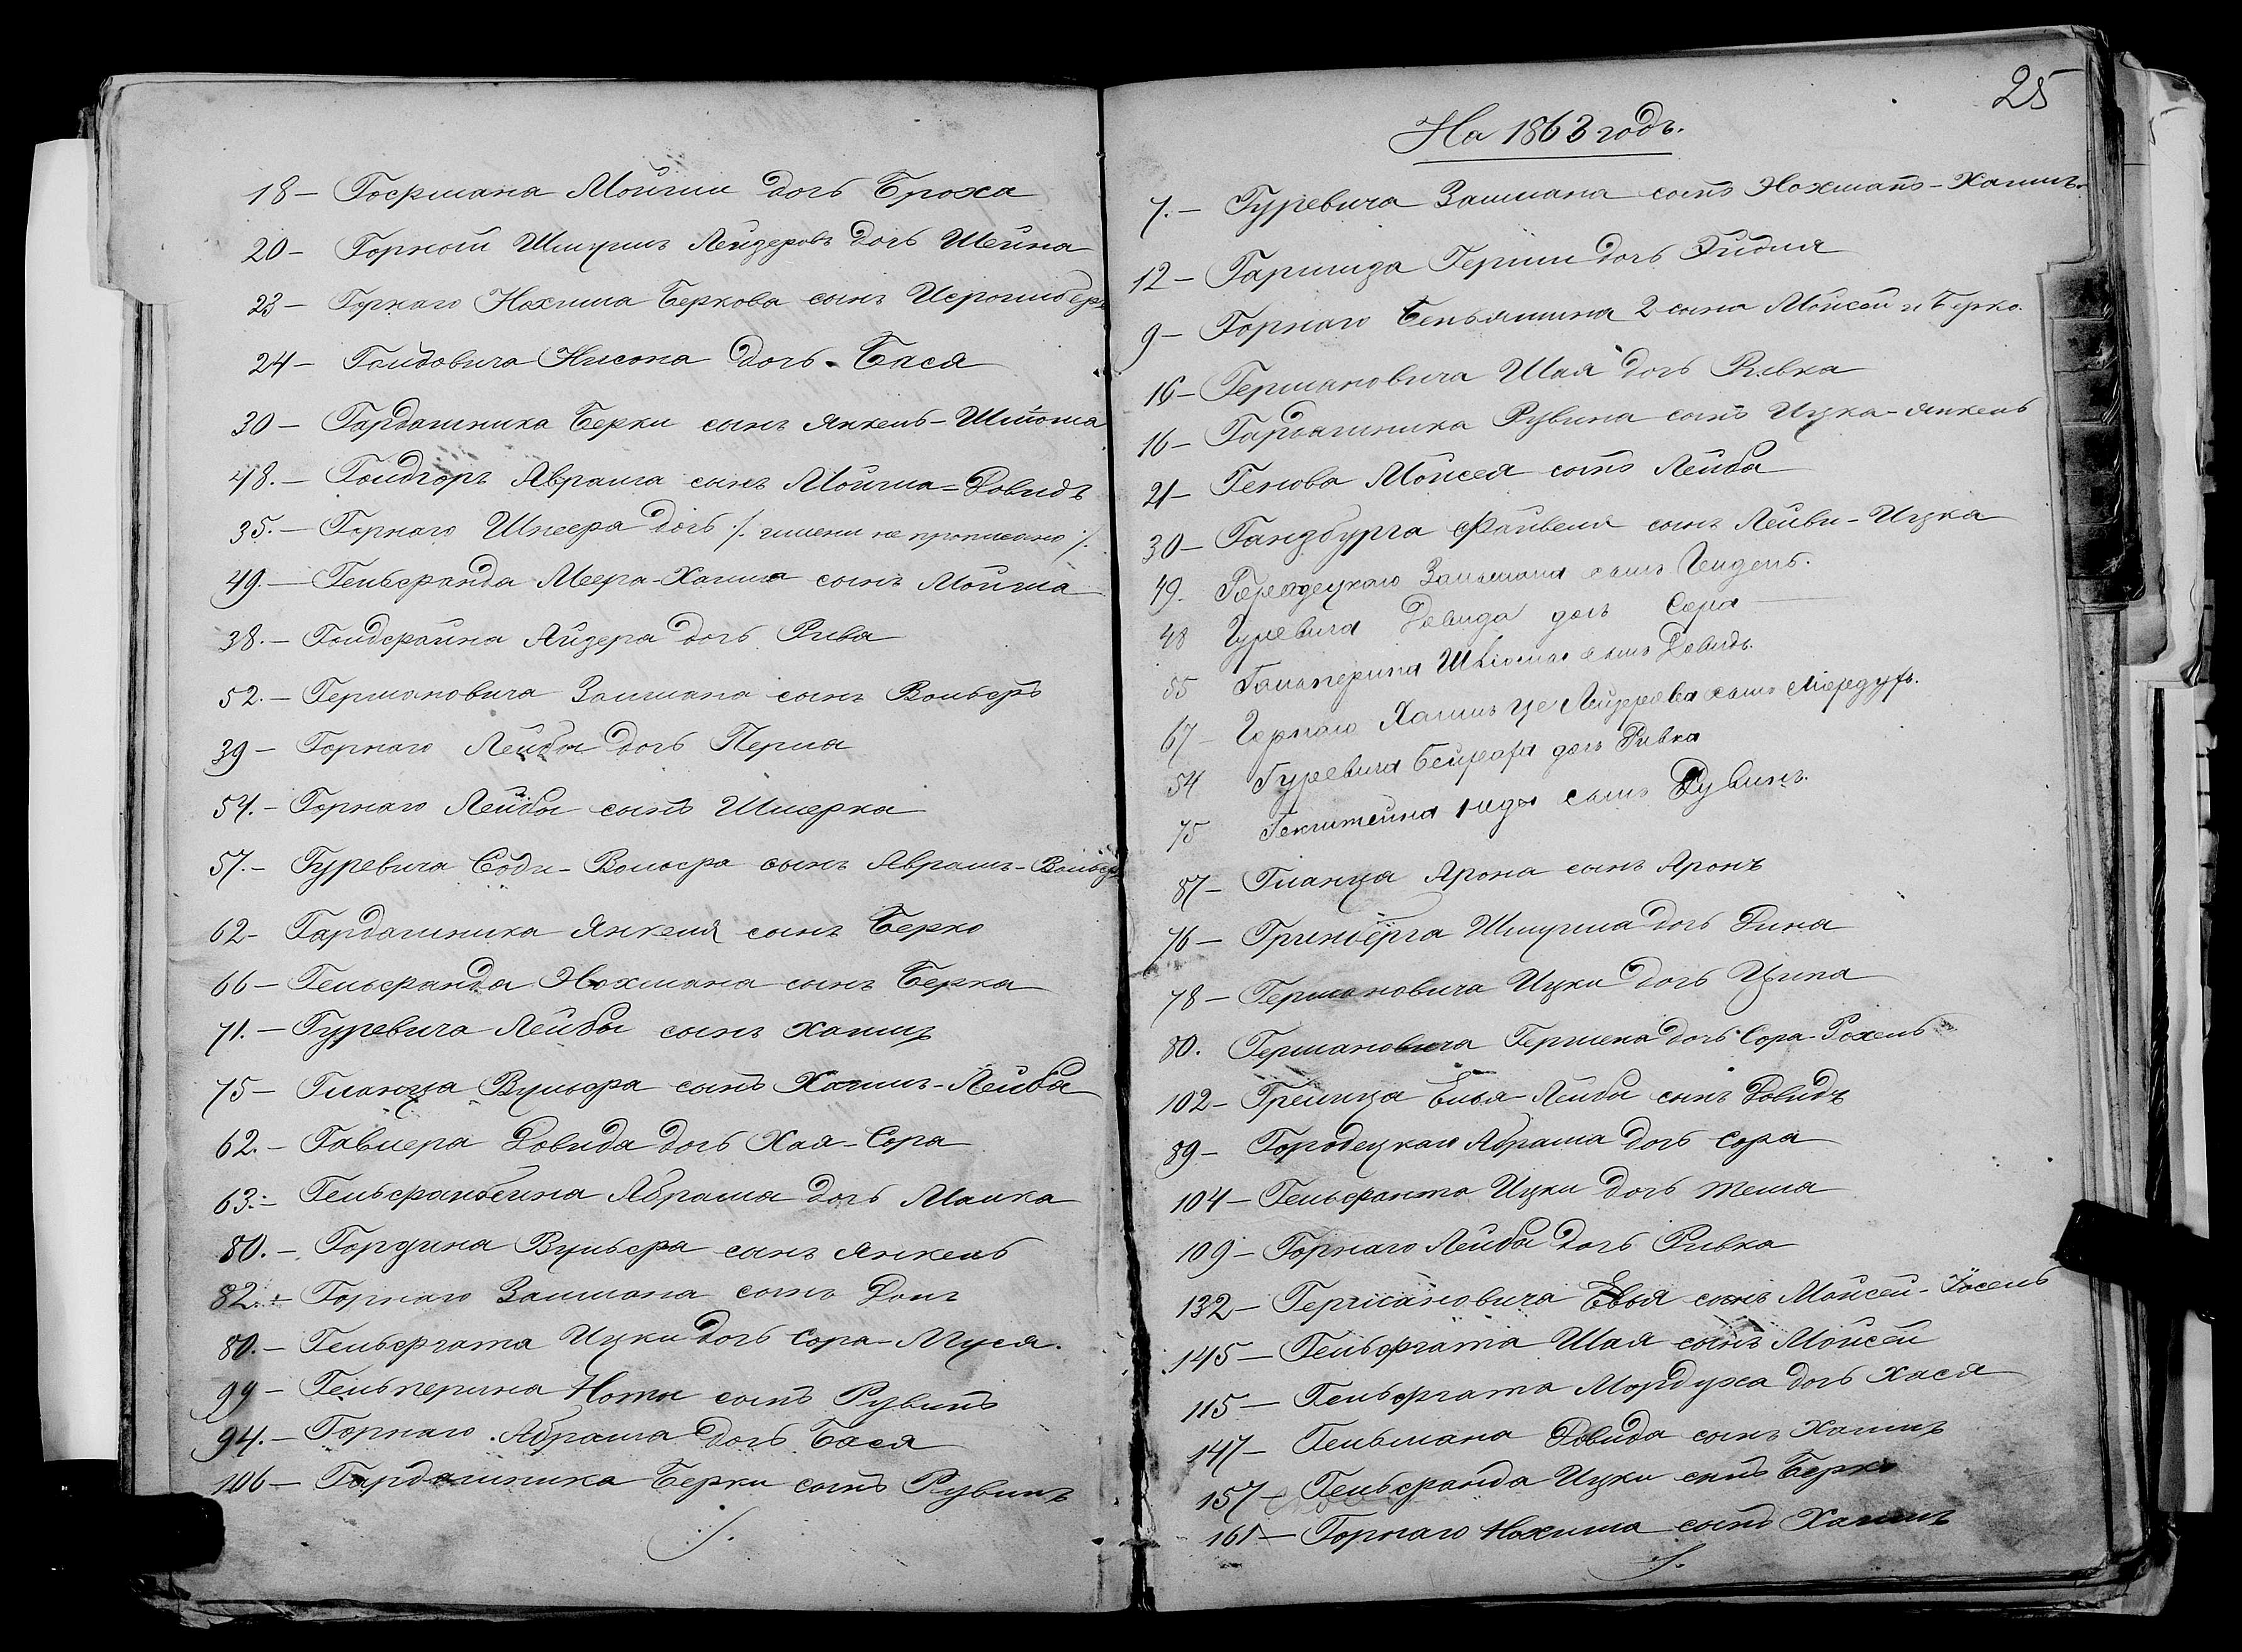 18 – Гофмана Мовши дочь Броха
20 – Горной Шмуилъ Лейзеровъ дочь Шейна
23 – Горнаго Нохима Беркова сынъ
24 – Гольдовича Нисона дочь Бася
30 – Гардашника Берки сынъ Янкель-Шлиома
48. – Гольдгоръ Абрама сынъ Мовша=Довидъ
35. – Горнаго Шнеера дочь /. имени не прописано /.
49. – Гельфанда Меера-Хаима сынъ Мовша
38. – Гольдфайна Лйзера дочь Рива
52. – Германовича Залмана сынъ Вольфъ
39 – Горнаго Лейбы дочь Перла
54. – Горнаго Лейбы сынъ Шмерка
57. – Гуревича Вольфа сынъ Абрамъ-Вольфъ
62 – Гардашника Янкеля сынъ Берко
66 – Гельфанда Нохмана сынъ Берка
71. – Гуревича Лейбы сынъ Хаимъ
75 – Гланца Вульфа сынъ Хаимъ-Лейба
62. – Довида дочь Хая-Сора
63. – Абрама дочь Малка
80. – Гордина Вульфа сынъ Янкель
82. – Горнаго Залмана сынъ
80. – Гельфгата Ицки дочь Сора-Муся.
99 – Гельперина Ноты сынъ Рувинъ
94. – Горнаго Абрама дочь Бася
106 – Гардашника Берки сынъ Рувинъ
./.
25
На 1863 годъ.
7. – Гуревича Залмана сынъ Нохманъ-Хаимъ.
12 – Герши дочь
9 – Горнаго Беньямина 2 сына Мойсей и Берко.
16 – Германовича Шая дочь Ривка
16 – Гардашника Рувина сынъ Ицка-Янкель
21 – Генова Мойсея сынъ Лейба
30 – Гандбурга Файвеля сынъ Лейви-Ицка
49. Городецкаго Залмана сынъ Гендель.
48 Гуревича Довида дочь Сора
55 Гальперина Шліомы сынъ Довидъ.
67 – Горнаго Хаимъ Лейзерова сынъ Мордухъ.
54 Гуревича дочь Ривка
75 сынъ Рувинъ.
87 – Гланца Арона сынъ Аронъ
76 – Гринберга Шмуила дочь Дина
78 – Германовича Ицки дочь Ципа
80. Германовича Гершена дочь Сора-Рохель
102 – Елья-Лейбы сынъ Довидъ
89 – Городецкаго Абрама дочь Сора
104 – Гельфанта Ицки дочь Тема
109 – Горнаго Лейбы дочь Ривка
132 – Германовича Евья сынъ Мойсей-Іосель
145 – Гельфгата Шая сынъ Мойсей
115 – Гельфгата Мордуха дочь Хася
147 – Гельмана Довида сынъ Хаимъ
157 – Гельфанда Ицки сынъ Берко
161 – Горнаго Нохима сынъ Хаимъ
./.